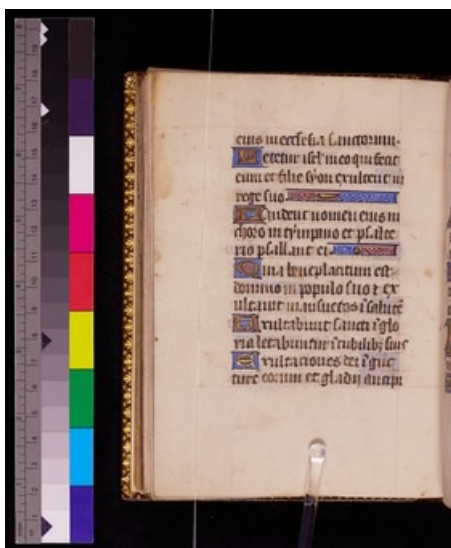 eius in ecclesia sanctorum.
Letetur isrl' in eo qui fecit
eum et filie syon exultent in
rege suo
Laudent nomen eius in
choro in tympano et psalte
rio psallant ei
Quia beneplacitum est
domino in populo suo et ex
ultauit mansuetos ī salutē
Exultabunt sancti ī glo
ria letabuntur ī cubilibꝫ suis
Exultaciones dei ī gut
ture eorum et gladij ancipi